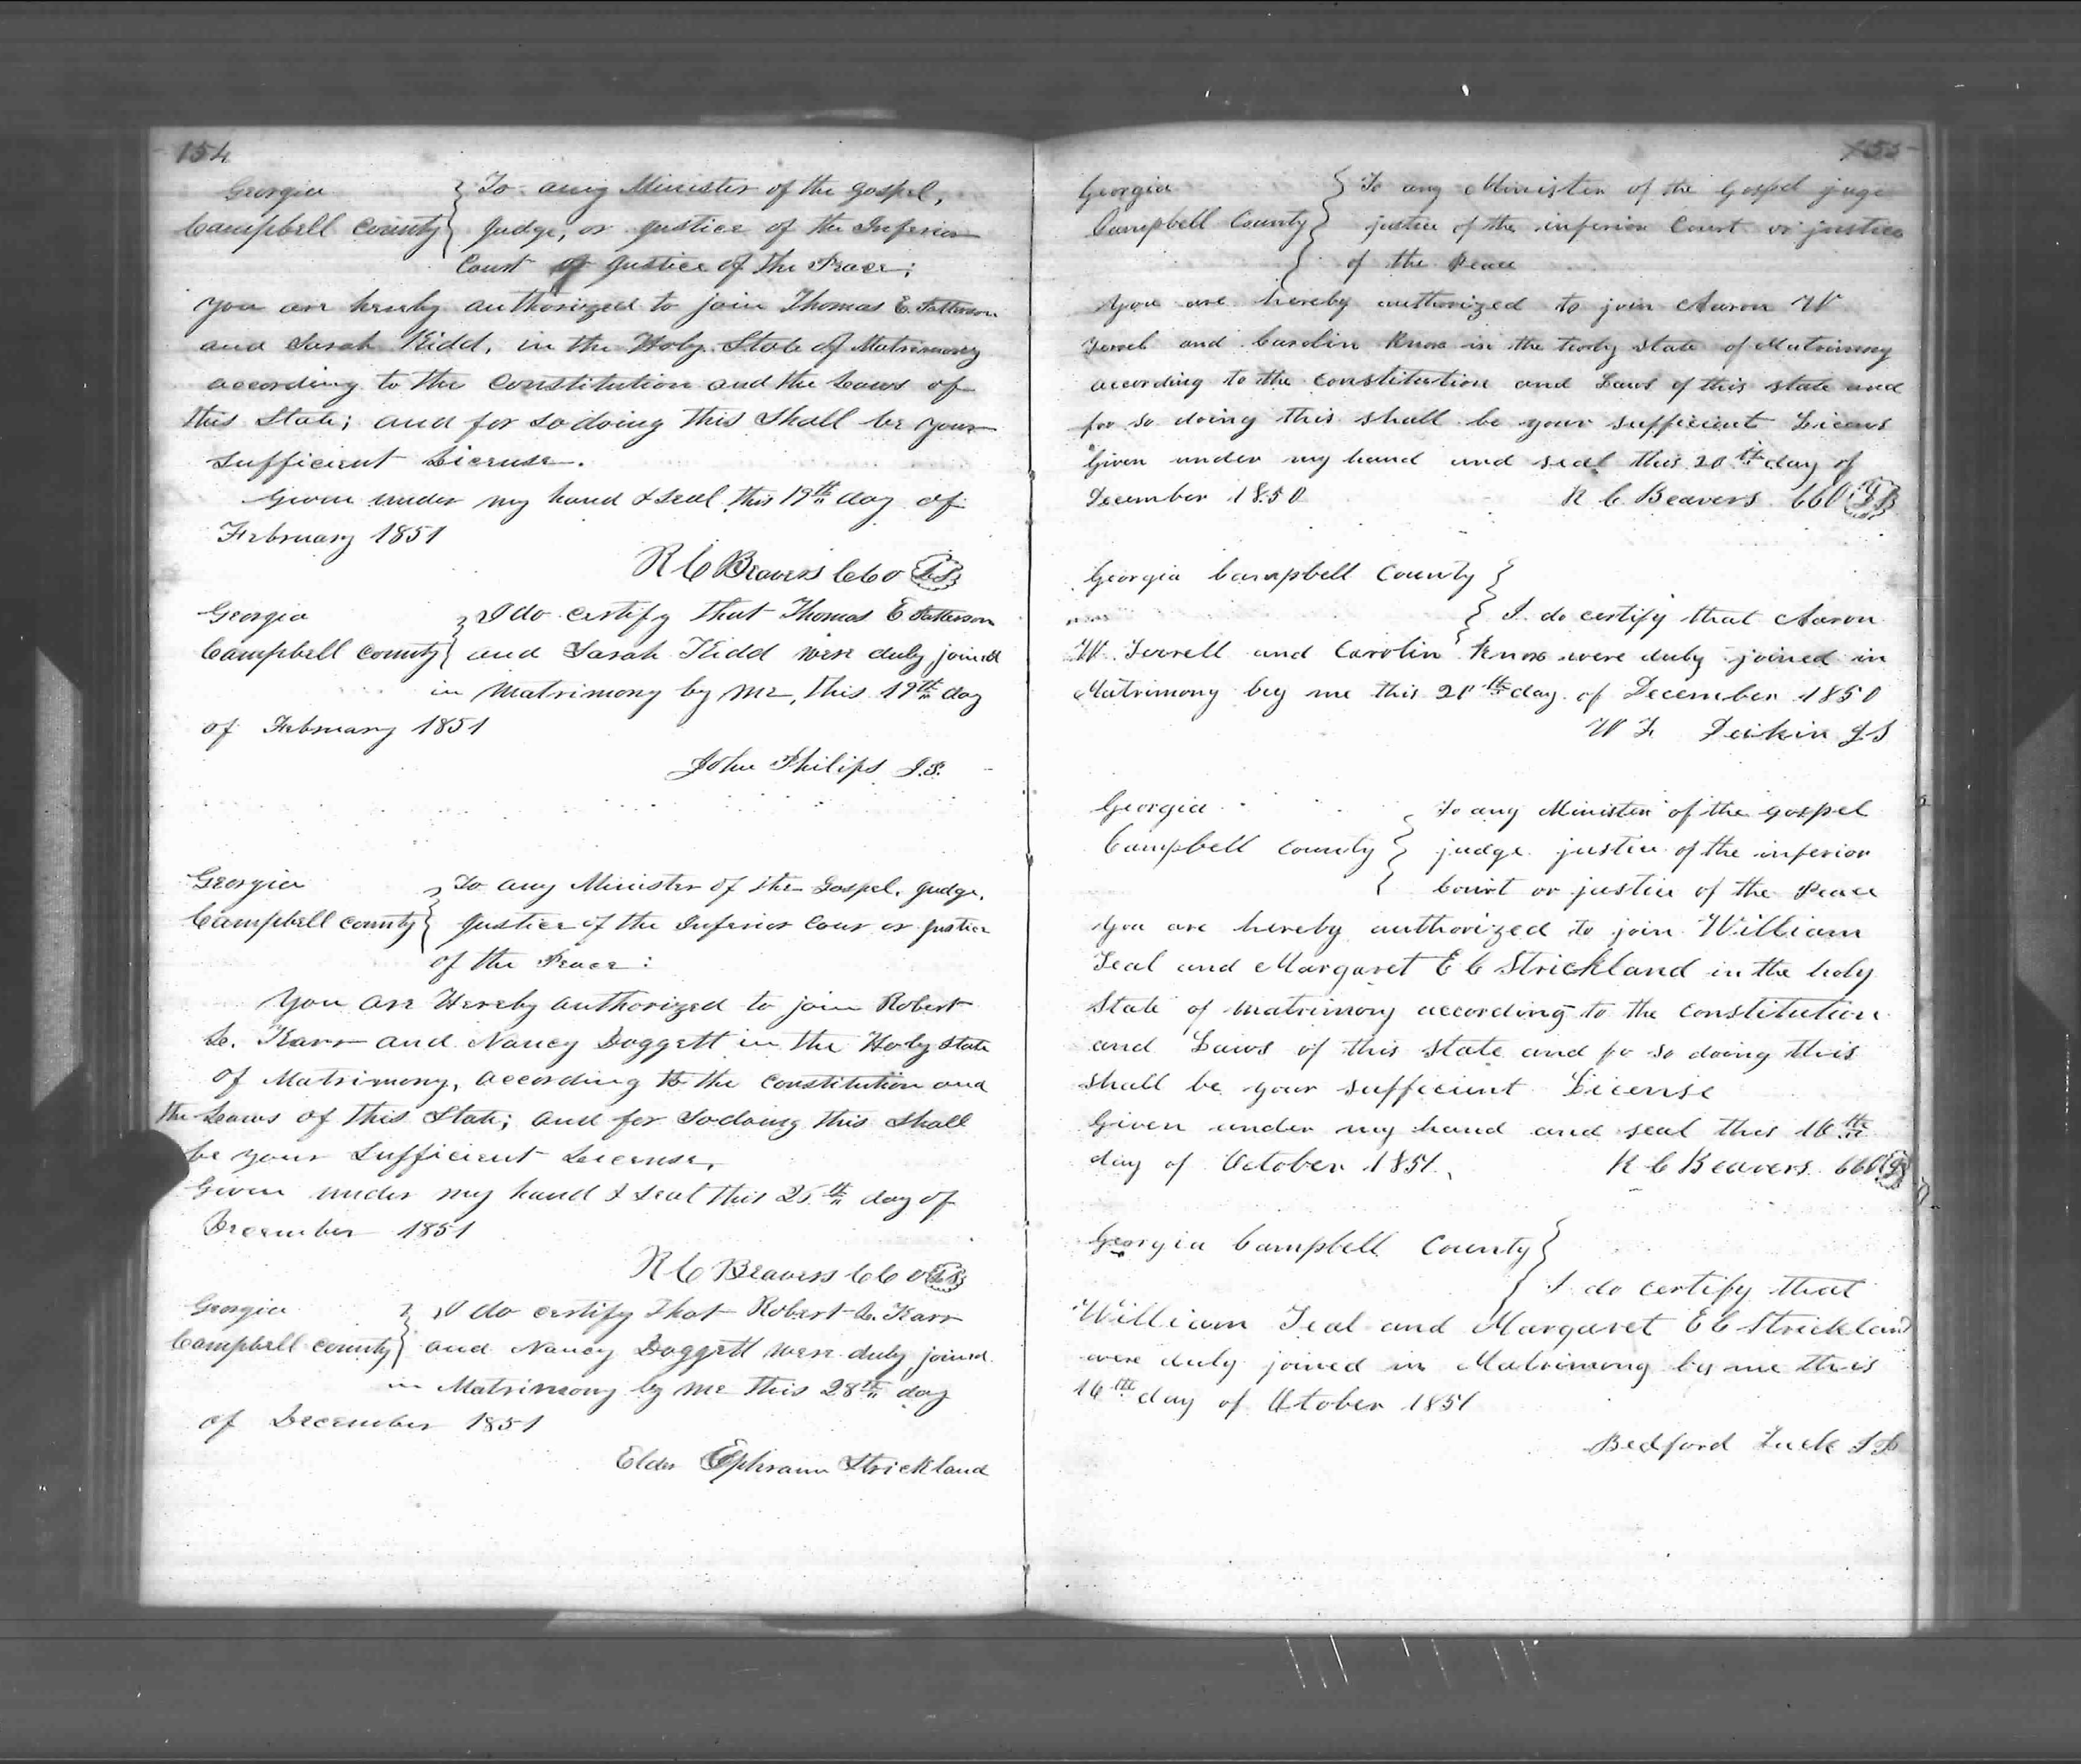 154
Georgia } To any Minister of the gospel,
Campbell County } Judge, or Justice of the Inferior
Court of Justice of the Peace;
You are hereby authorized to join Thomas E. Patterson
and Sarah Kidd, in the Holy State of Matrimony
according to the Constitution and the Laws of
this State; and for so doing this Shall be your
Sufficient License.
Given under my hand & seal this 19th day of
February 1851
R C Beavers C C O L.S.
Georgia } I do certify that Thomas E Patterson
Campbell County } and Sarah Kidd were duly joined
in Matrimony by me, this 19th day
of February 1851
John Philips J.P.
Georgia } To any Minister of the Gospel, Judge,
Campbell County } Justice of the Inferior Cour or Justice
of the Peace:
You are Hereby authorized to join Robert
L. Karr and Nancy Doggett in the Holy State
of Matrimony, according to the Constitution and
the Laws of this State; and for so doing this Shall
be your Sufficient License,
Given under my hand & Seal this 25th day of
December 1851
R C Beavers C C O L.S.
Georgia } I do certify that Robert L. Karr
Campbell County } and Nancy Doggett were duly joined
in Matrimony by me this 28th day
of December 1851
Elder Ephraim Strickland
155
Georgia } To any Minister of the Gospel juge
Campbell County } justice of the inferior Court or justice
of the Peace
You are hereby authorized to join Aaron W
and Carolin Knox in the holy State of Matrimony
according to the constitution and Laws of this state and
for so doing this shall be your sufficient Licens
Given under my hand and seal this 20th day of
December 1850 R C Beavers C C O L S
Georgia Campbell County }
I do certify that Aaron
W. Terrell and Carolin Knox were duly joined in
Matrimony by me this 20th day of December 1850
W
Georgia } To any Minister of the gospel
Campbell County } judge justice of the inferior
Court or justice of the Peace
You are hereby authorized to join William
Teal and Margaret E C Strickland in the holy
State of matrimony according to the constitution
and Laws of this state and fo so doing this
shall be your sufficient License
Given under my hand and seal this 16th
day of October 1851. R C Beavers C C O
Georgia Campbell County }
I do certify that
William Teal and Margaret E C Strickland
were duly joined in Matrimony by me this
16th day of October 1851
Bedford